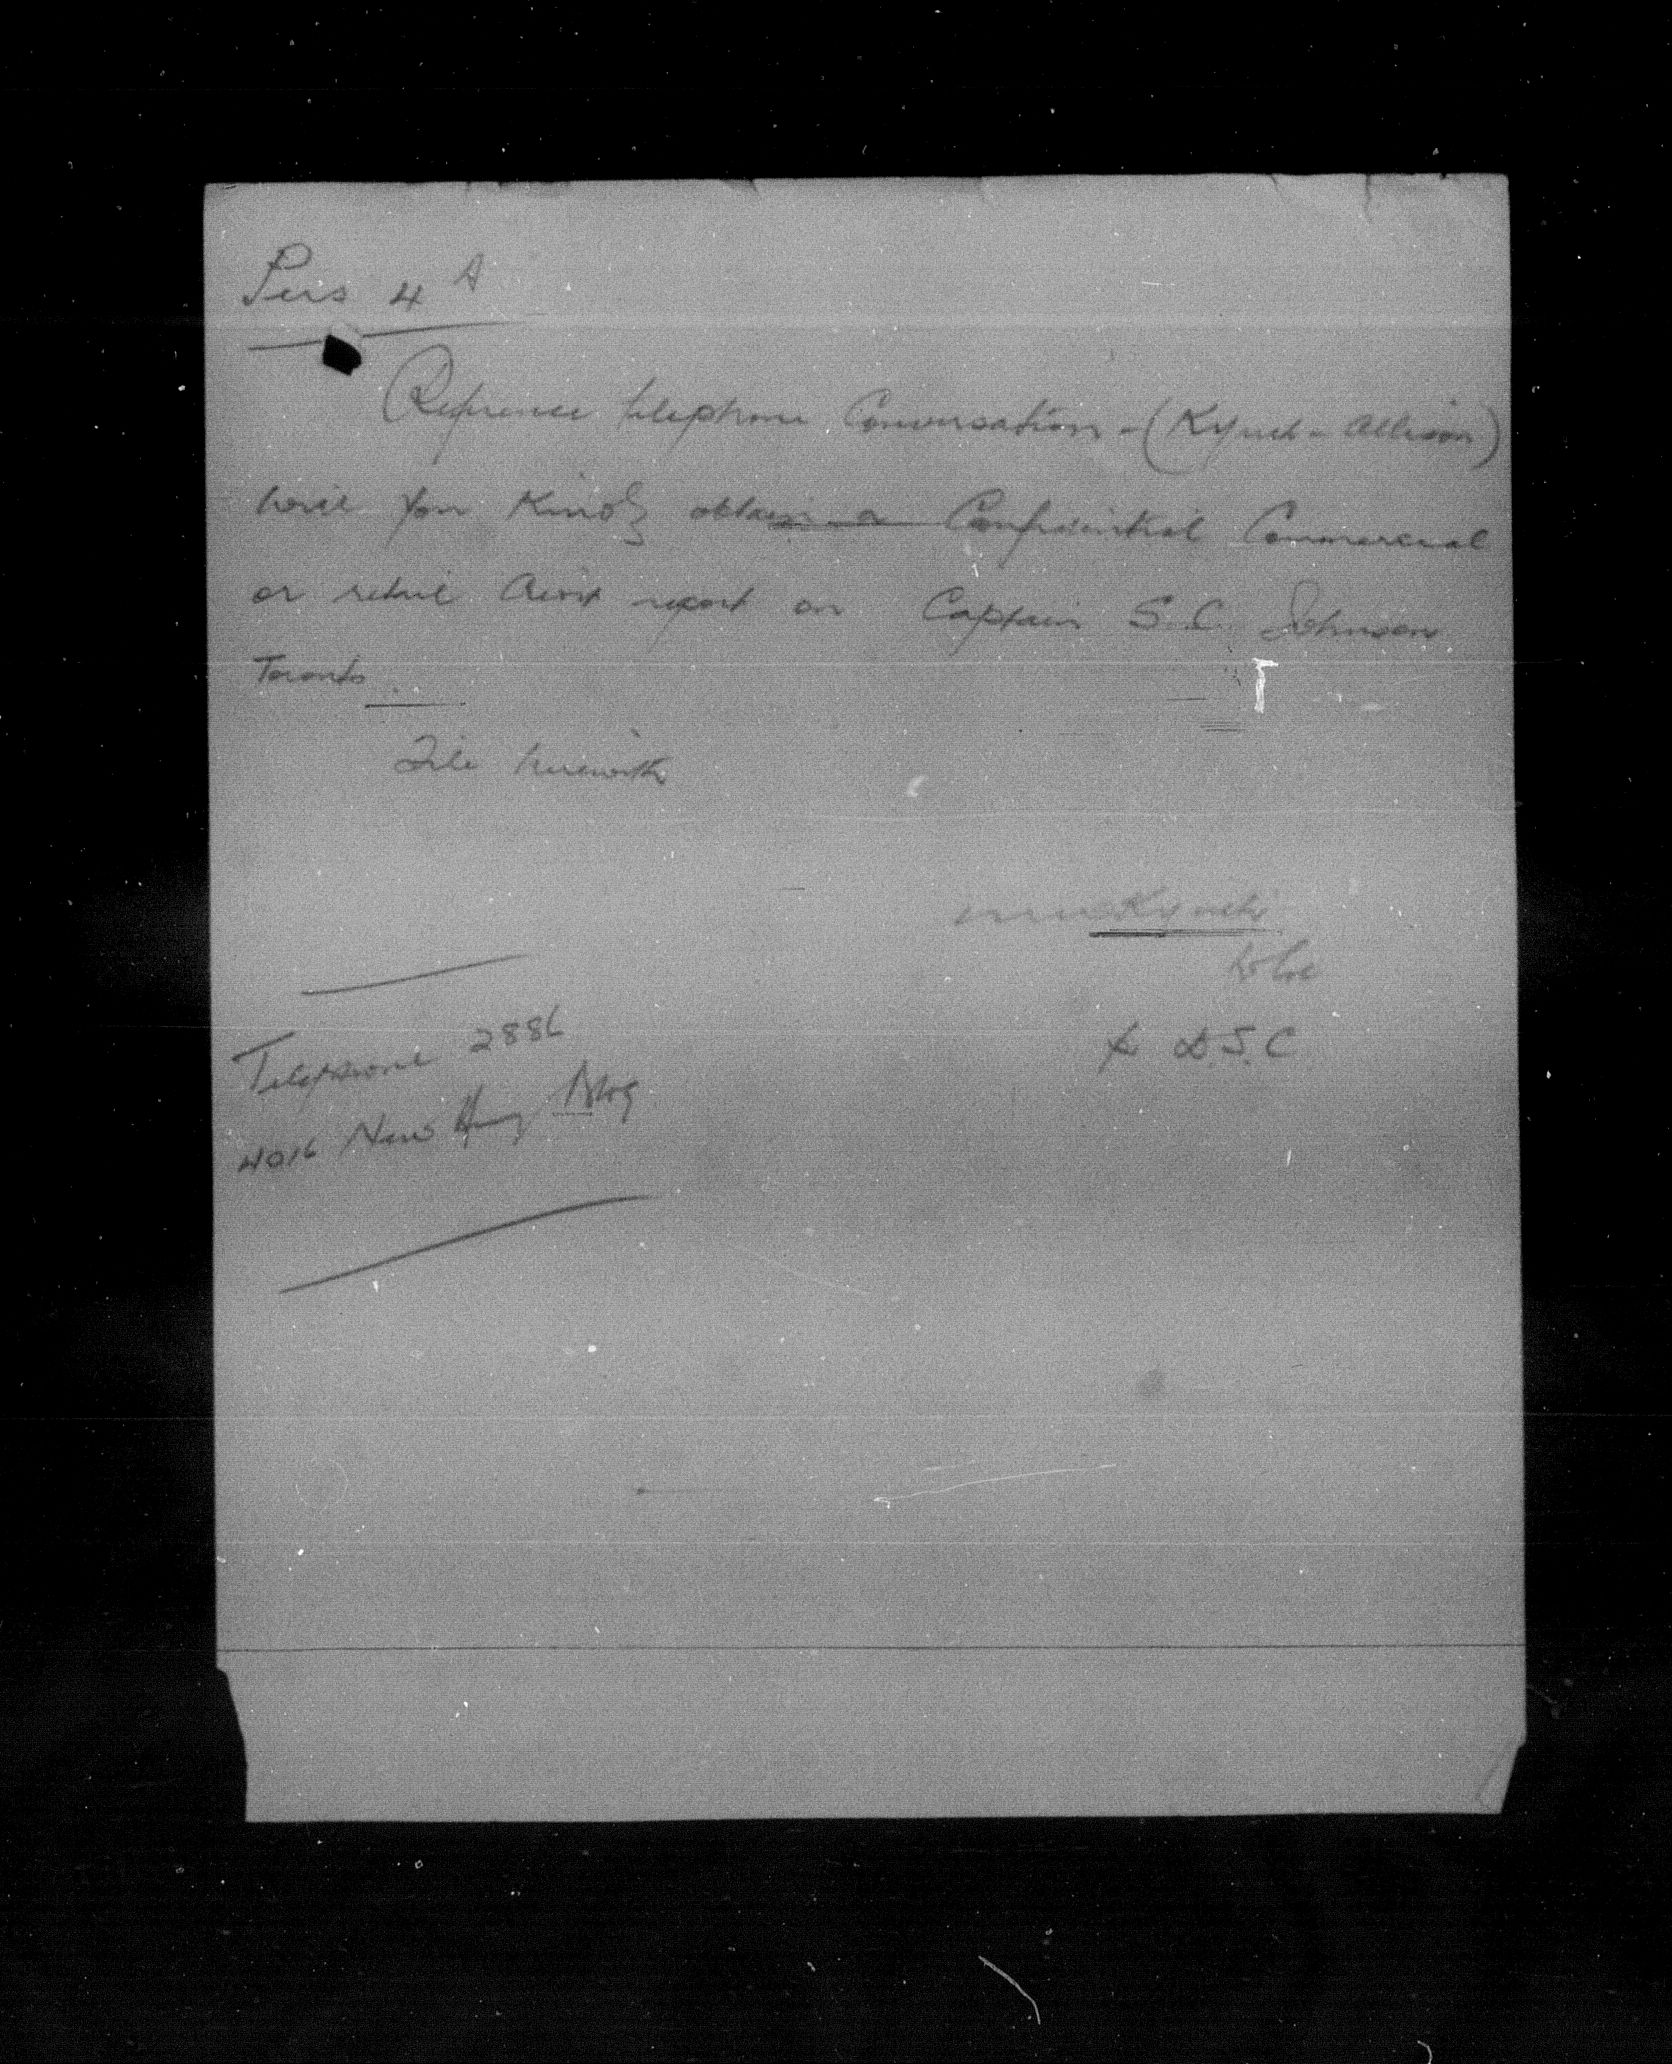 Pers 4 A
Reference telephone Conversation - (Kynch - Allison)
will you kindly obtain a Confidential Commercial
or retail credit report on Captain S.C. Johnson
Toronto
File herewith
Kynch
W/Cdr
for D.S.C.
Telephone 2886
4016 New Army Bldg